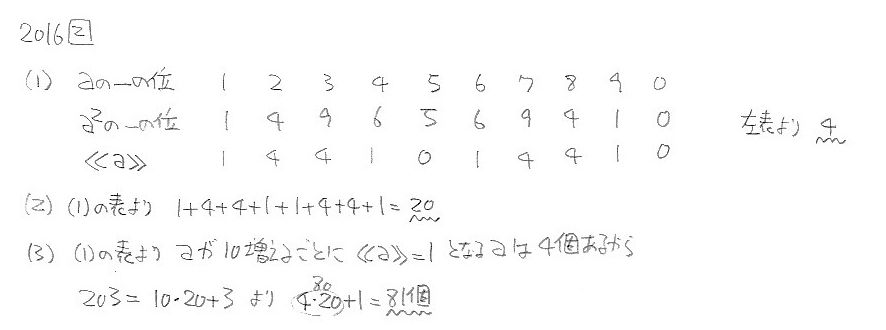 2016 2
(1) aの一の位 1 2 3 4 5 6 7 8 9 0
a²の一の位 1 4 9 6 5 6 9 4 1 0 左表より 4
≪a≫ 1 4 4 1 0 1 4 4 1 0
(2) (1)の表より 1+4+4+1+1+4+4+1=20
(3) (1)の表より aが10増えるごとに≪a≫=1となるaは4個あるから
80
203=10・20+3 より 4・20+1=81個